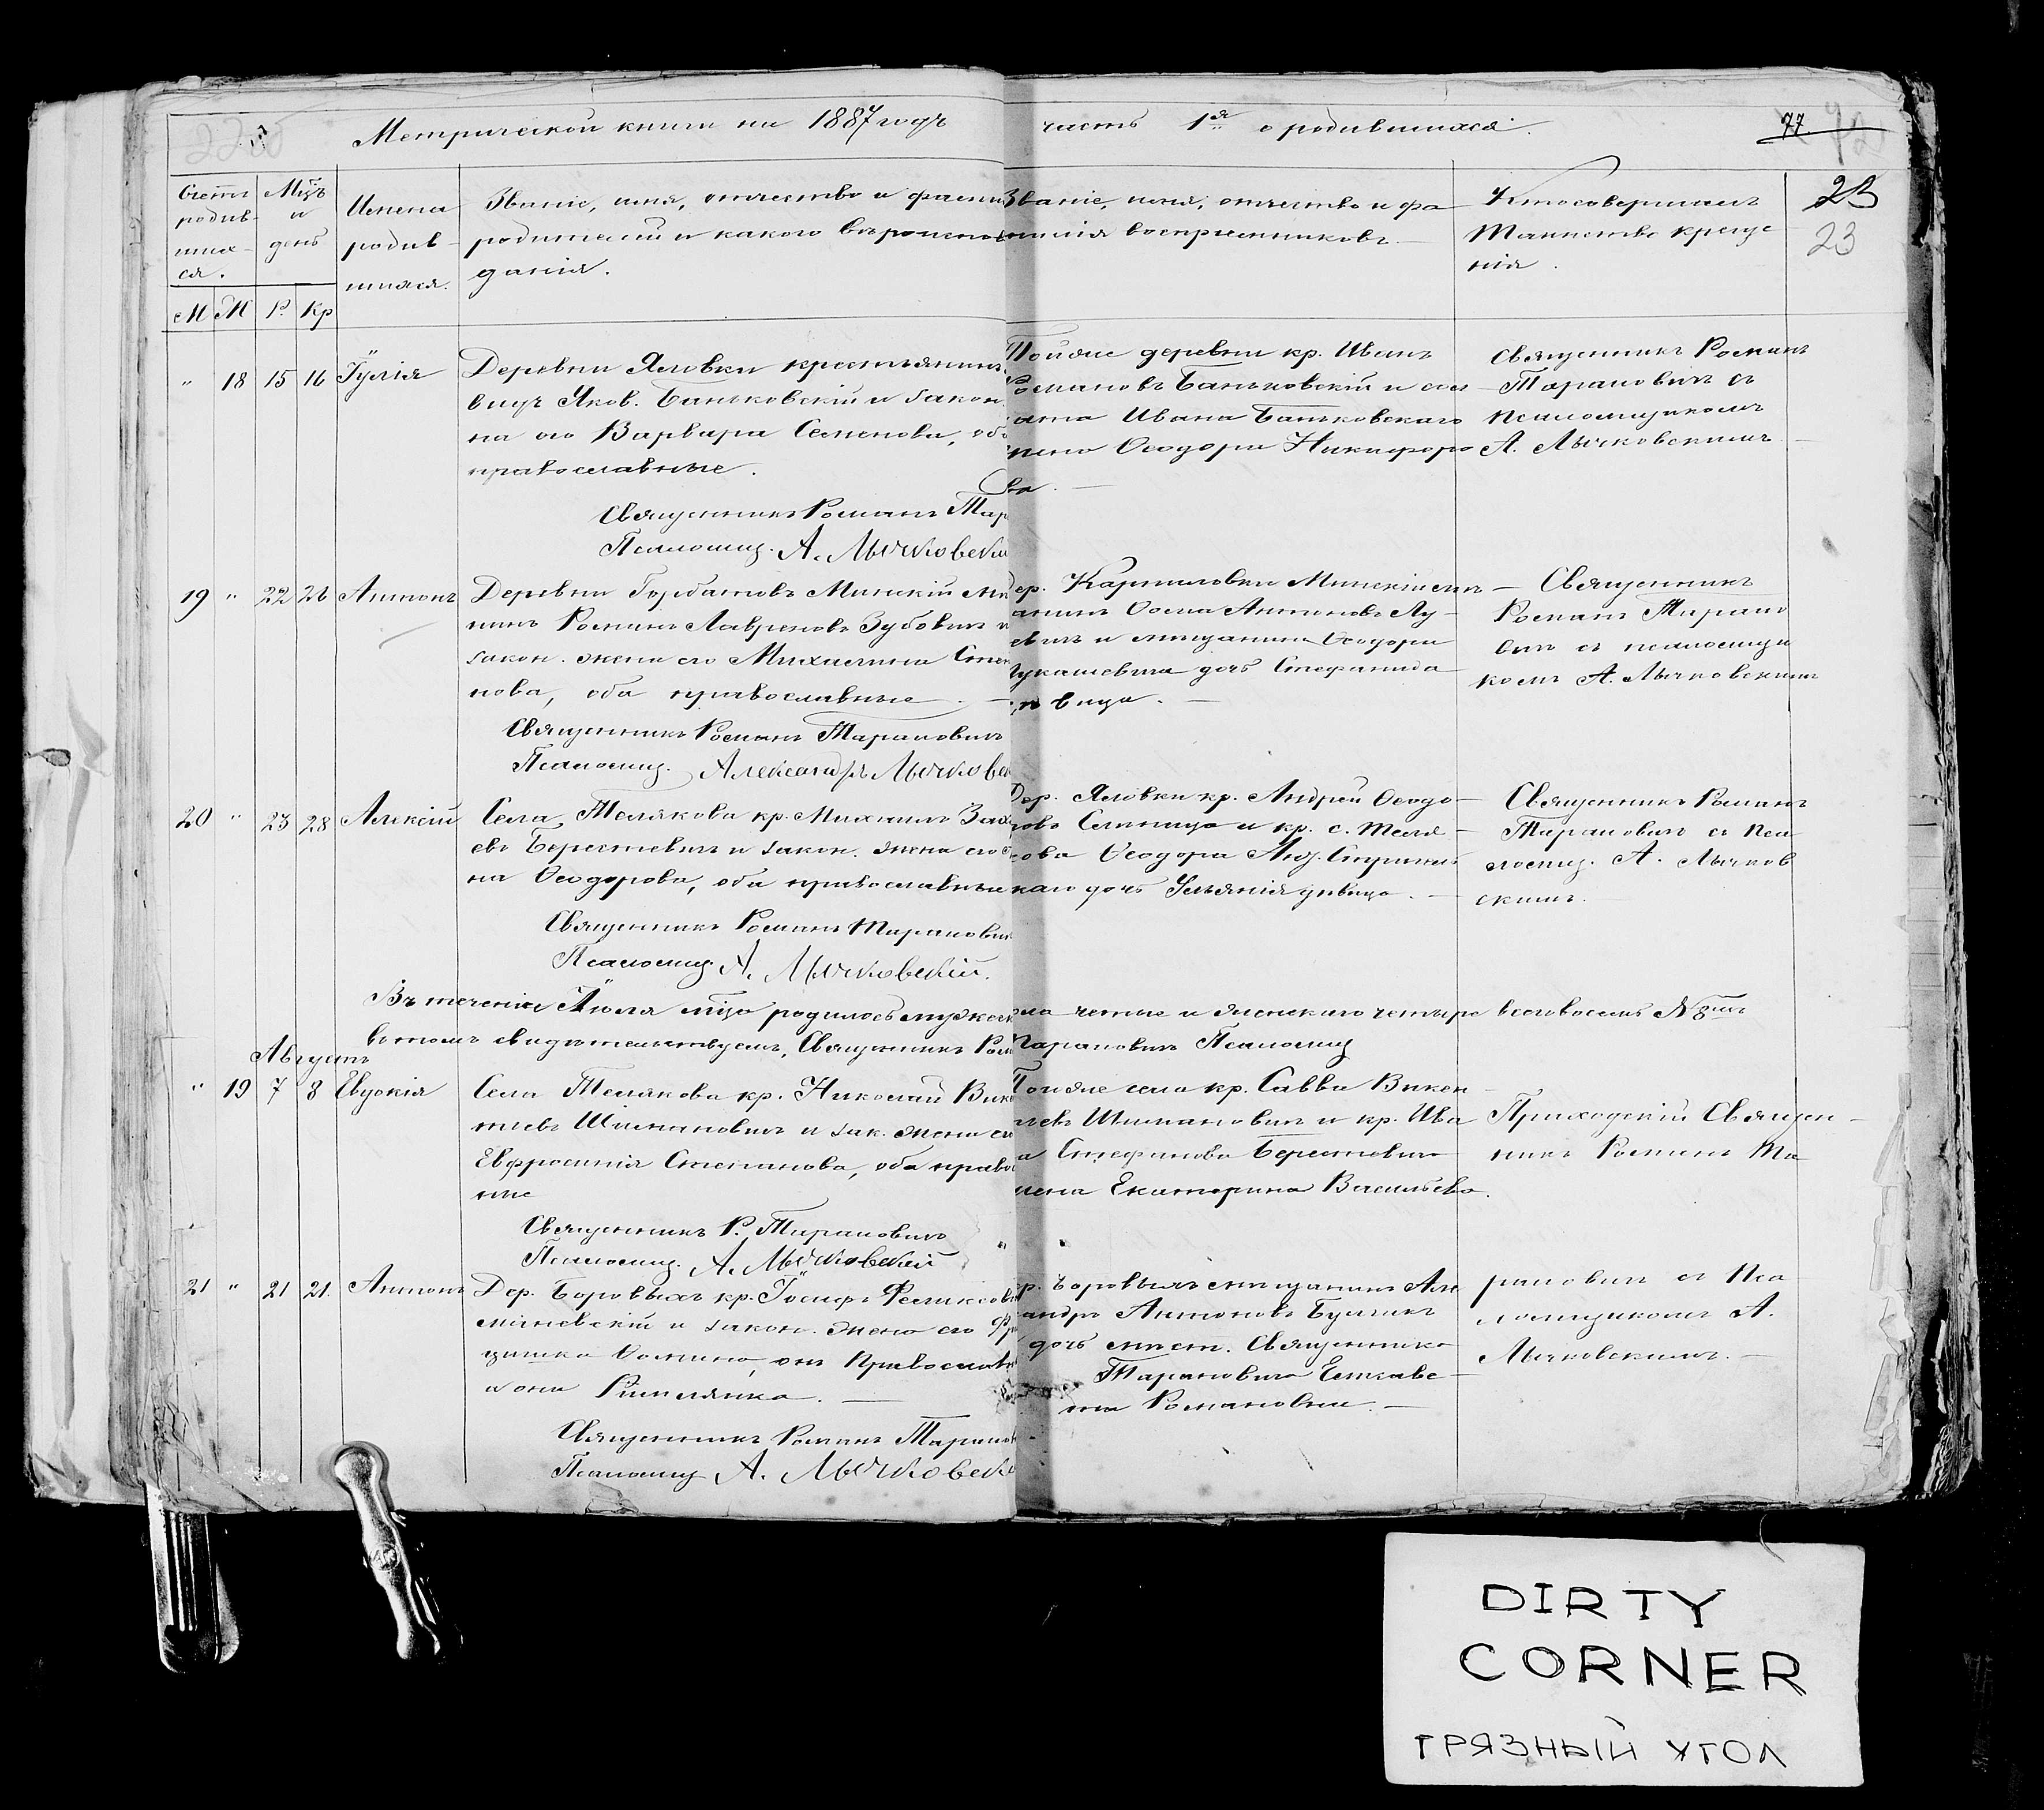 Метрической книги на 1887 годъ
часть 1я о родившихся.
77
Счетъ родив-шихъ-ся.
Мцъ и день
Имена родив-шихся.
Званіе, имя, отчество и фами
родителей и какого вѣроиспов
данія.
М Ж Р. Кр
Званіе, имя, отчество и фа
милія воспріемниковъ
Кто совершалъ
Таинство креще
нія.
23
23
" 18 15 16 Іулія
Деревни Яловки крестьянинъ
Яков. Баньковскій и закон.
на его Варвара Семенова, обо
православные.
Священникъ Романъ Тар
Псаломщ. А. Лычковски
Тойже деревни кр. Иванъ
Романовъ Баньковскій и
Ивана Баньковскаго
жена Ѳеодора Никифоро
ва.
Священникъ Романъ
Тарановичъ съ
псаломщикомъ
А. Лычковскимъ
19 " 22 26 Антонъ
Деревни Горбатовъ Минскій мѣ
нинъ Романъ Лавреновъ Зубовичъ и
закон. жена его Михалина Степ
нова, оба православные. —
Священникъ Романъ Тарановичъ
Псаломщ. Александръ Лычковск
ер. Карпиловки Минскій мѣщ
анинъ Ѳома Антоновъ Лу-
и мѣщанина Ѳеодора
Лукашевича дочь Стефанида
дѣвица. —
— Священникъ
Романъ Тарано
вичъ съ псаломщи
комъ А. Лычковскимъ
20 " 23 28 Алексій
Села Телякова кр. Михаилъ Зах
евъ Берестевичъ и закон. жена его
на Ѳеодорова, оба православные
Священникъ Романъ Тарановичъ
Псаломщ. А. Лычковскій.
Дер. Яловки кр. Андрей Ѳеодо-
ровъ и кр. с. Теля-
кова Ѳеодора
каго дочь Ульянія дѣвица. —
Священникъ Романъ
Тарановичъ съ Пса
ломщ. А. Лычков
скимъ.
Въ теченіи Іюля мѣца родилось мужеск
ола четыре и женскаго четыре всего восемь № 8мь
въ томъ свидѣтельствуемъ, Священникъ Ром
Тарановичъ Псаломщ
Августъ
" 19 7 8 Евдокія
Села Телякова кр. Николай Вике
тіевъ Шимановичъ и зак. жена ег
Евфросинія Степанова, оба правос
ные
Священникъ Р. Тарановичъ
Псаломщ. А. Лычковскій
Тогоже села кр. Савва Викен
тіевъ Шимановичъ и кр. Ива
а Стефанова Берестовича
жена Екатерина Васильева.
Приходскій Священ-
никъ Романъ Та
21 " 21 21. Антонъ
Дер. Боровыхъ кр. Іосифъ Феликсов
и закон. жена его Фра
цишка Ѳомина, онъ Православн
и она Римлянка. —
Священникъ Романъ Таранов
Псаломщ А. Лычковск
ер. Боровыхъ мѣщанинъ Але
андръ Антоновъ
дочь мѣст. Священника
Тарановича Елисаве-
та Романовна. —
рановичъ съ Пса
ломщикомъ А.
Лычковскимъ. —
DIRTY
CORNER
ГРЯЗНЫЙ УГОЛ